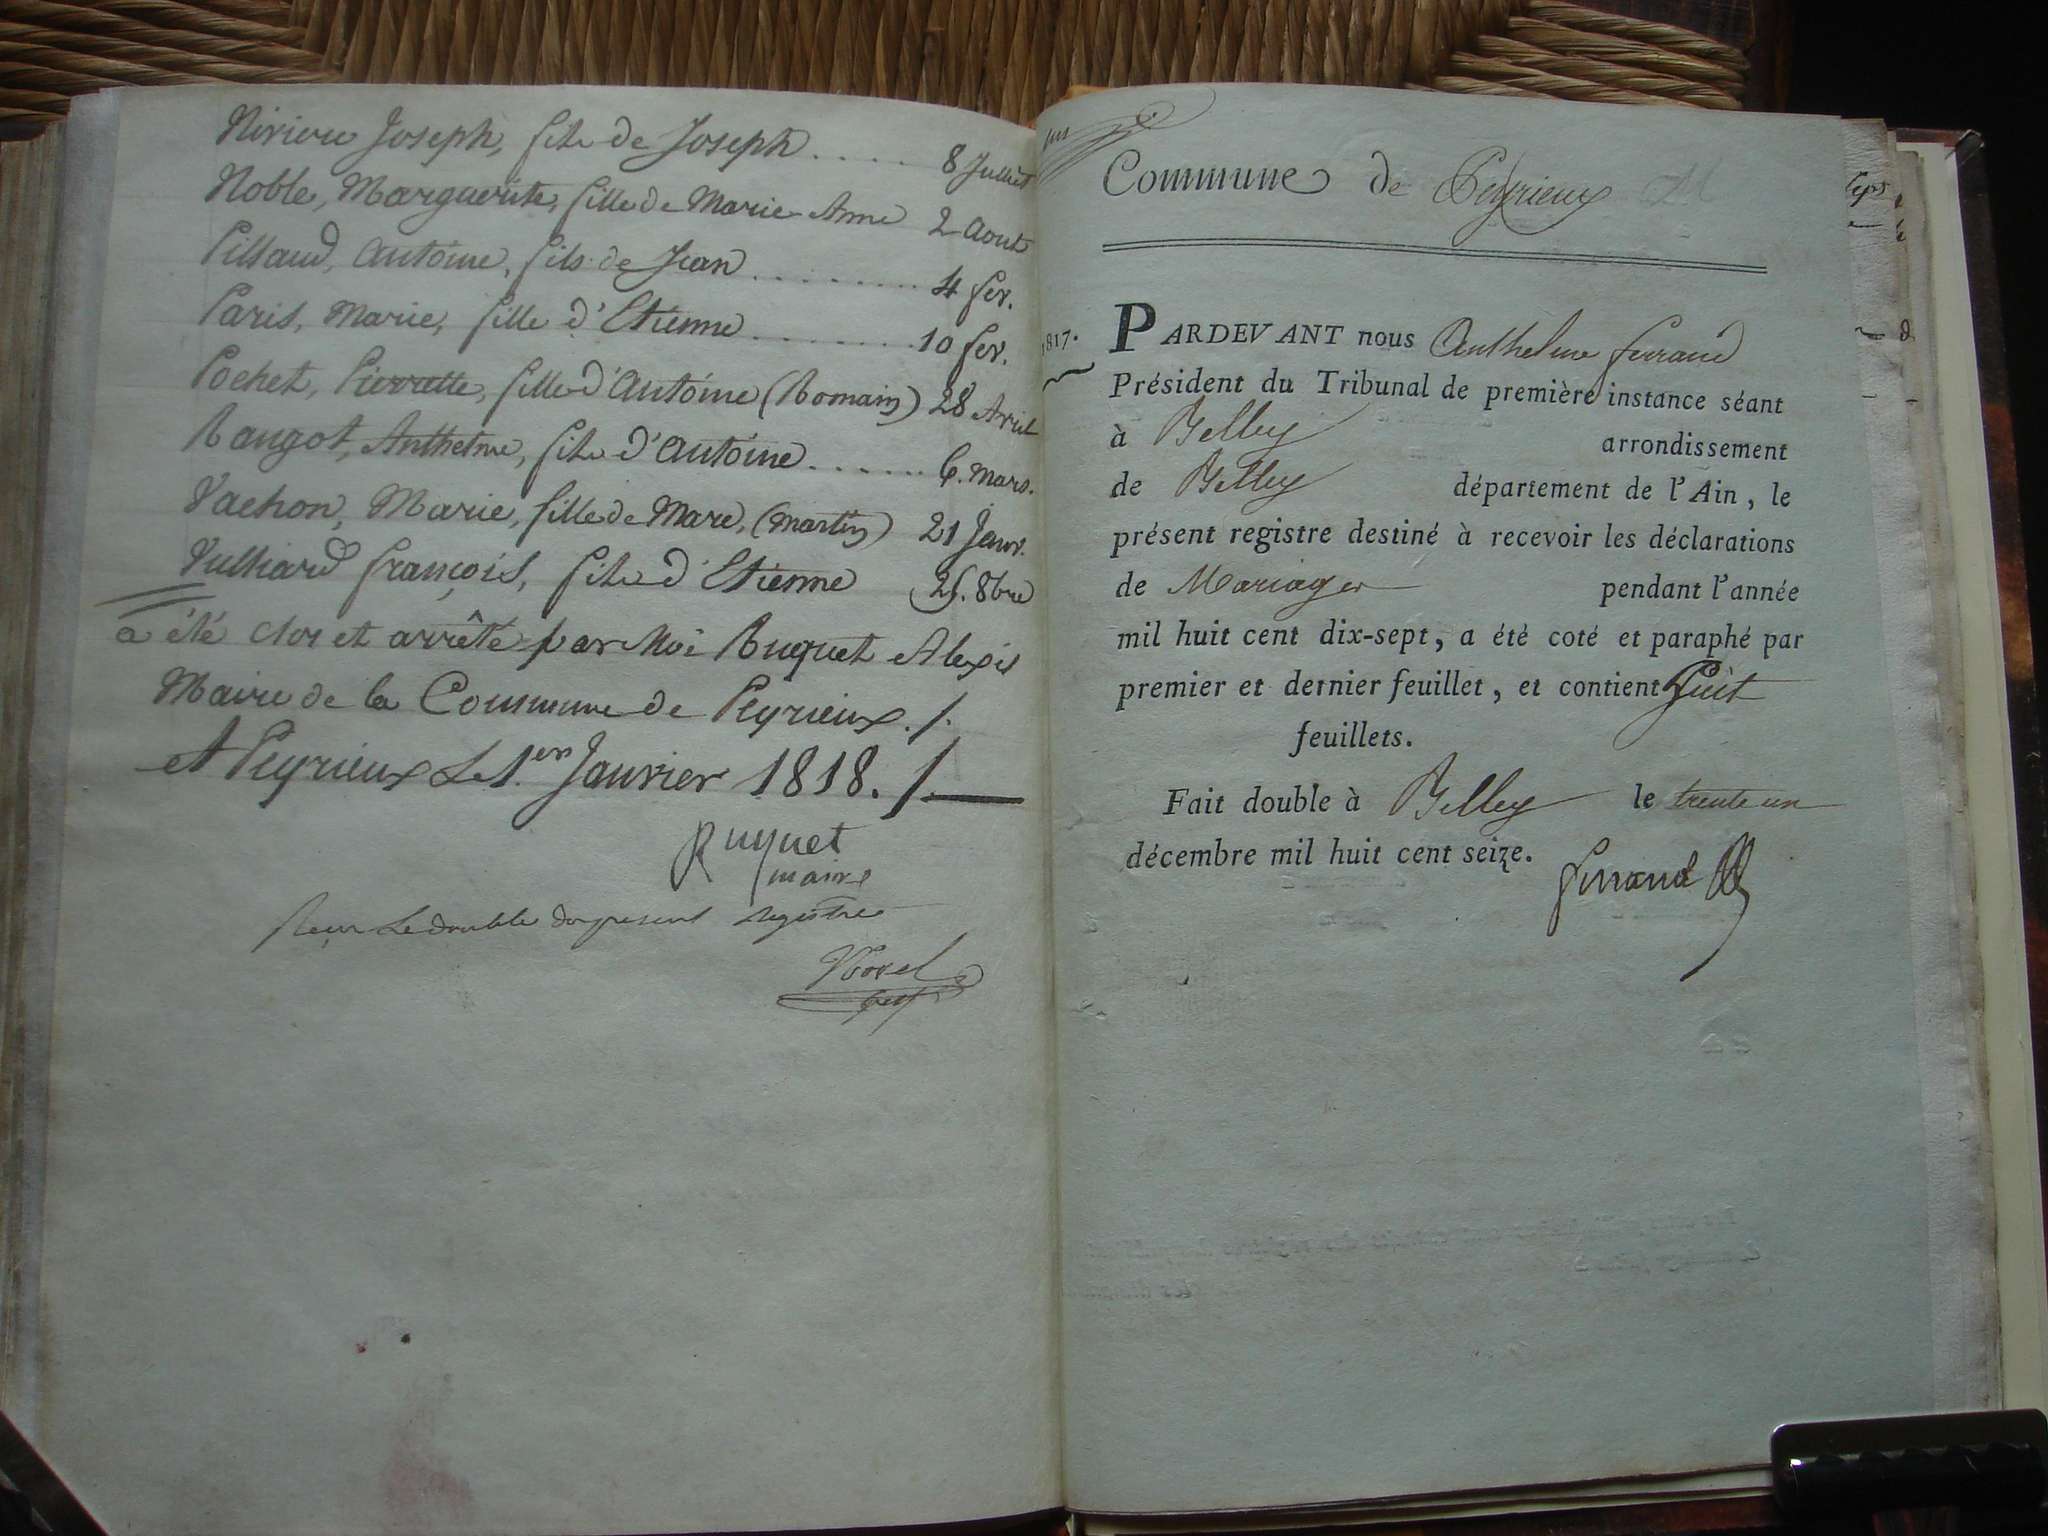 Nirieu Joseph, fils de Joseph ..... 8 Juillet
Noble, Marguerite, fille de Marie-Anne 2 Aout
Pillaud, Antoine, fils de Jean ......... 4 fev.
Paris, Marie, fille d'Etienne ........ 10 fev.
Pochet, Pierrette, fille d'Antoine (Romain) 28 Avril
Rangot, Anthelme, fils d'Antoine ....... 6. mars.
Vachon, Marie, fille de Marc, (Martin) 21 Janv.
Vulliard François, fils d'Etienne 25. 8bre
a été clos et arrêté par Moi Ruquet Alexis
Maire de la Commune de Peyrieux./.
A Peyrieux Le 1er Janvier 1818./.
Ruquet
maire
Reçu le double du present registre
Commune de Peyrieux
1817.
PARDEVANT nous Anthelme ferrand
Président du Tribunal de première instance séant
à Belley arrondissement
de Belley département de l'Ain, le
présent registre destiné à recevoir les déclarations
de Mariages pendant l'année
mil huit cent dix-sept, a été coté et paraphé par
premier et dernier feuillet, et contient huit
feuillets.
Fait double à Belley le trente un
décembre mil huit cent seize.
ferrand